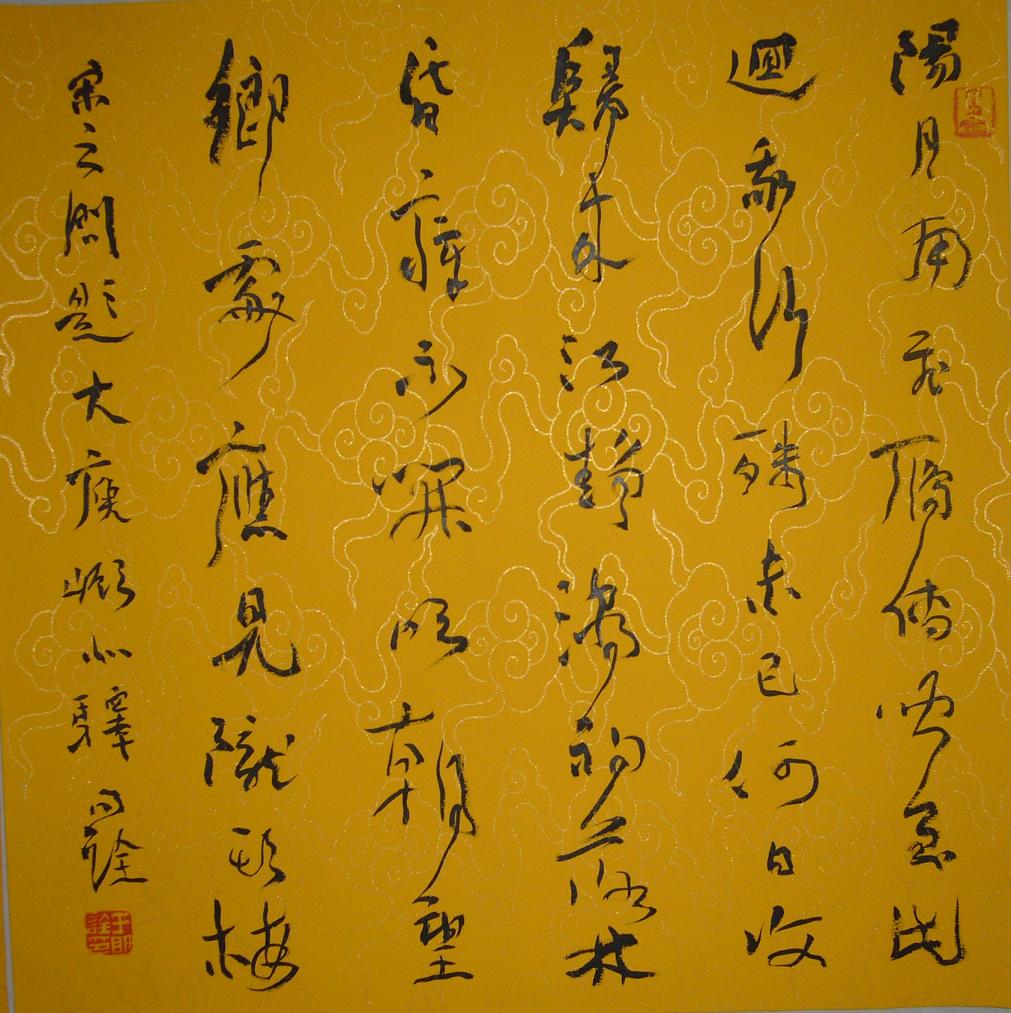 陽月南飛雁傳聞至此
迴我行殊未已何日復
歸來江靜潮初落林
昏瘴不開明朝望
鄉處應見隴頭梅
宋之問題大庾嶺北驛 明詮